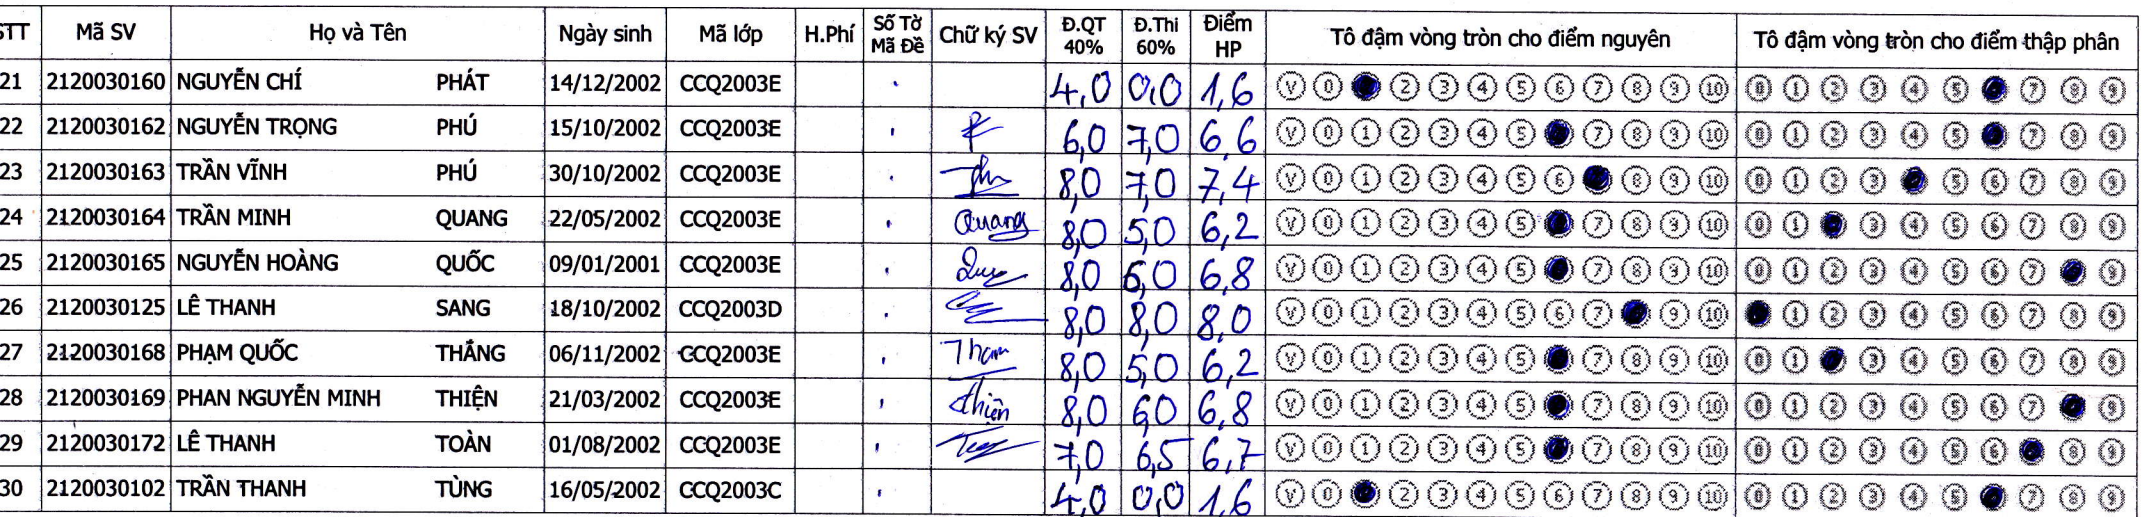 STT Mã SV Họ và Tên Ngày sinh Mã lớp H.Phí Số Tờ Mã Đề Chữ ký SV Đ.QT 40% Đ.Thi 60% Điểm HP Tô đậm vòng tròn cho điểm nguyên Tô đậm vòng tròn cho điểm thập phân
21 2120030160 NGUYỄN CHÍ PHÁT 14/12/2002 CCQ2003E 4,0 0,0 1,6 V 0 2 3 4 5 6 7 8 9 10 0 1 2 3 4 5 7 8 9
22 2120030162 NGUYỄN TRỌNG PHÚ 15/10/2002 CCQ2003E 6,0 7,0 6,6 V 0 1 2 3 4 5 7 8 9 10 0 1 2 3 4 5 7 8 9
23 2120030163 TRẦN VĨNH PHÚ 30/10/2002 CCQ2003E 8,0 7,0 7,4 V 0 1 2 3 4 5 6 8 9 10 0 1 2 3 5 6 7 8 9
24 2120030164 TRẦN MINH QUANG 22/05/2002 CCQ2003E Quang 8,0 5,0 6,2 V 0 1 2 3 4 5 7 8 9 10 0 1 3 4 5 6 7 8 9
25 2120030165 NGUYỄN HOÀNG QUỐC 09/01/2001 CCQ2003E 8,0 6,0 6,8 V 0 1 2 3 4 5 7 8 9 10 0 1 2 3 4 5 6 7 9
26 2120030125 LÊ THANH SANG 18/10/2002 CCQ2003D 8,0 8,0 8,0 V 0 1 2 3 4 5 6 7 9 10 1 2 3 4 5 6 7 8 9
27 2120030168 PHẠM QUỐC THẮNG 06/11/2002 CCQ2003E 8,0 5,0 6,2 V 0 1 2 3 4 5 7 8 9 10 0 1 3 4 5 6 7 8 9
28 2120030169 PHAN NGUYỄN MINH THIỆN 21/03/2002 CCQ2003E thiện 8,0 6,0 6,8 V 0 1 2 3 4 5 7 8 9 10 0 1 2 3 4 5 6 7 9
29 2120030172 LÊ THANH TOÀN 01/08/2002 CCQ2003E 7,0 6,5 6,7 V 0 1 2 3 4 5 7 8 9 10 0 1 2 3 4 5 6 8 9
30 2120030102 TRẦN THANH TÙNG 16/05/2002 CCQ2003C 4,0 0,0 1,6 V 0 2 3 4 5 6 7 8 9 10 0 1 2 3 4 5 7 8 9